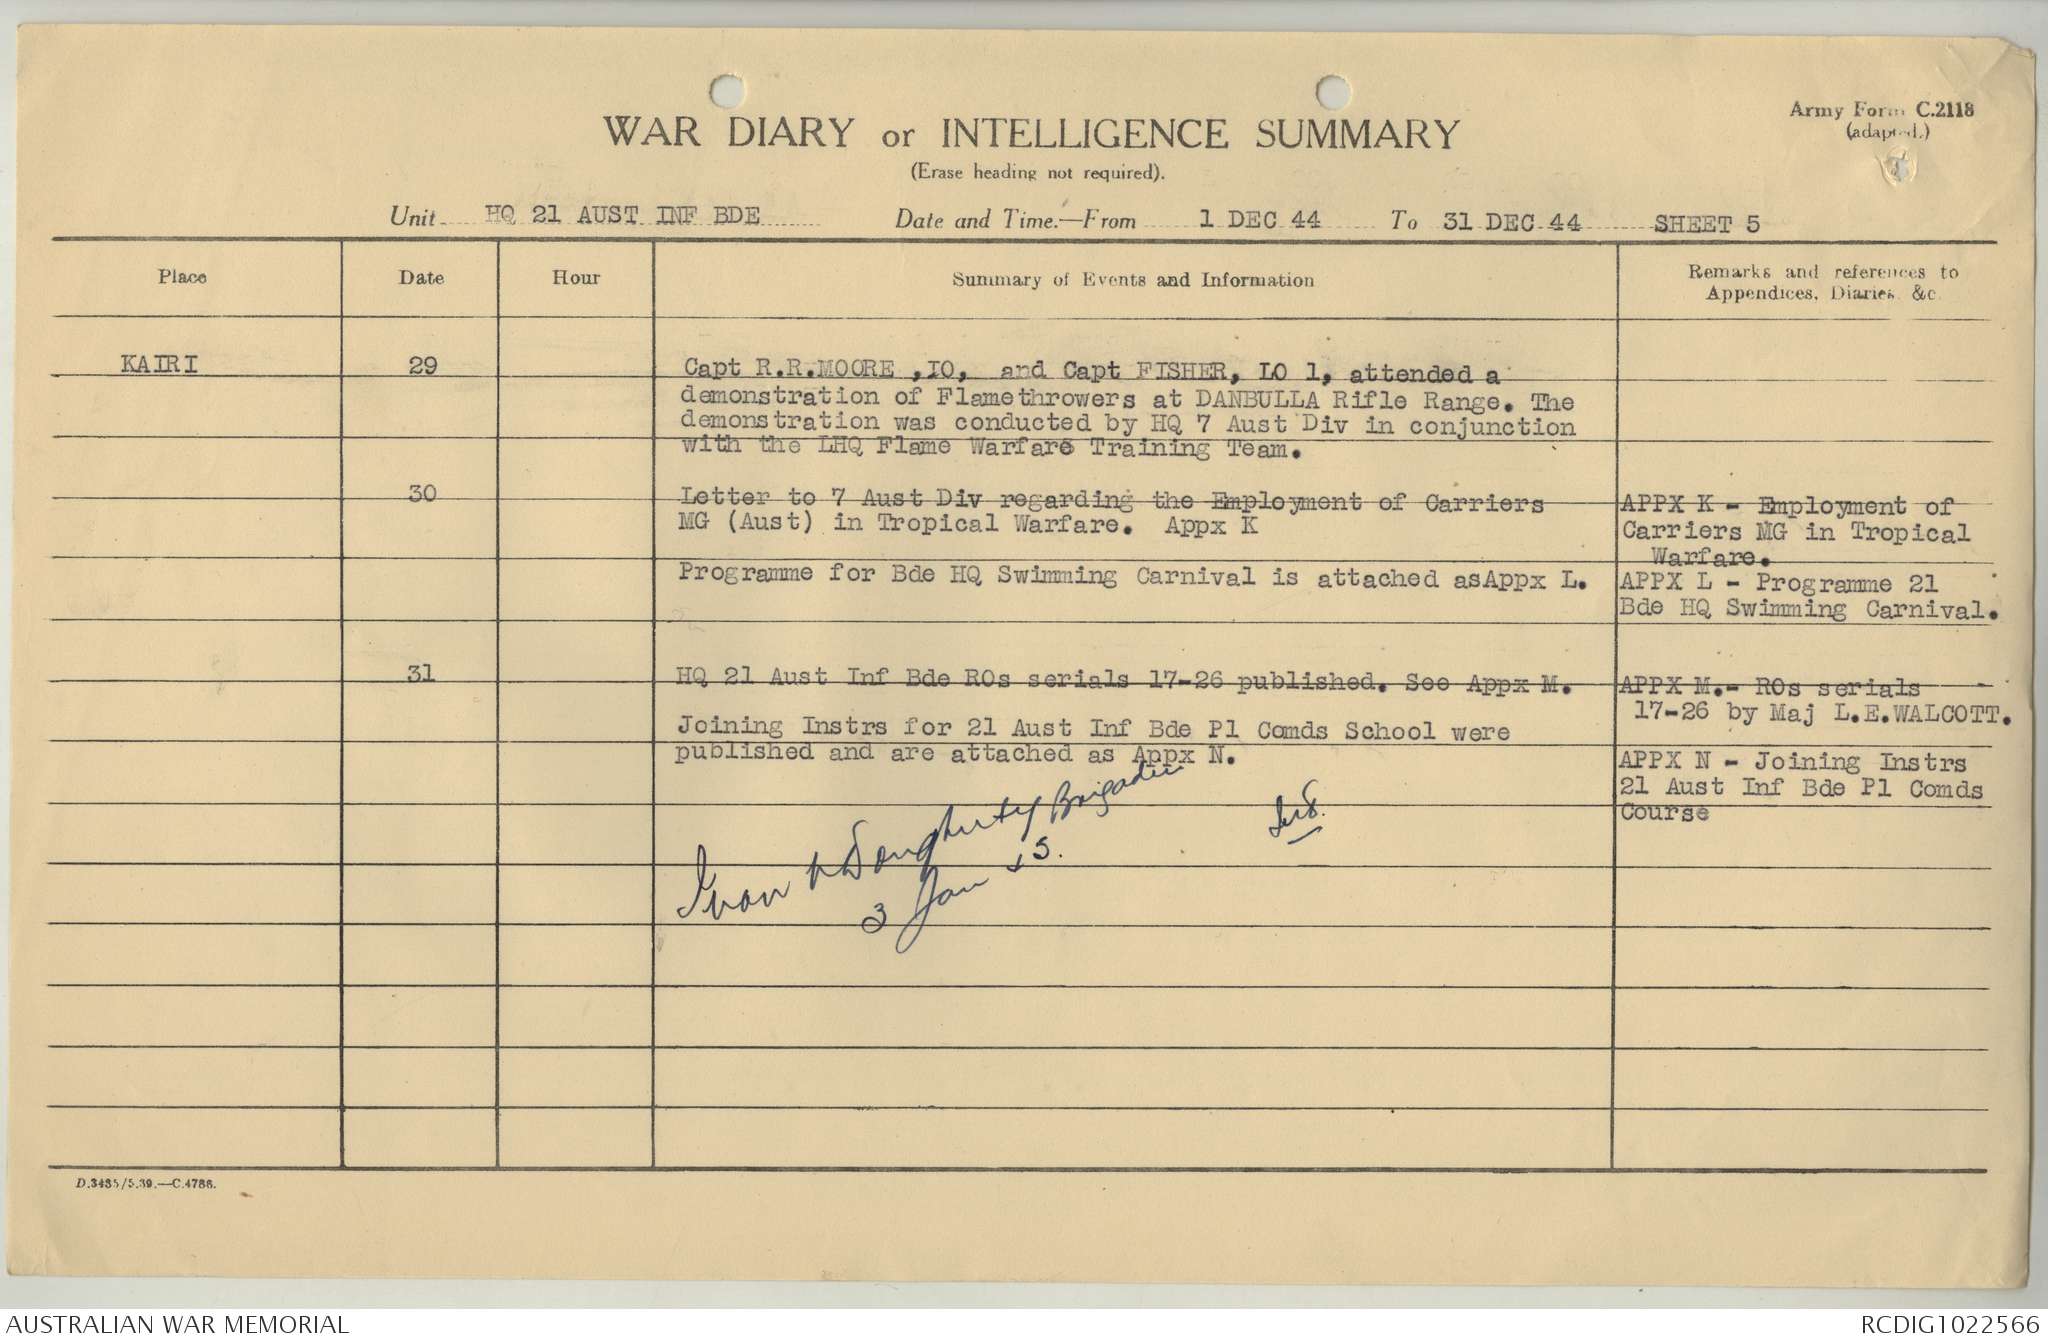 Army Form C.2118
(adapted.)
WAR DIARY or INTELLIGENCE SUMMARY
(Erase heading not required).
Unit HQ 21 AUST INF BDE Date and Time.—From 1 DEC 44 To 31 DEC 44 SHEET 5
Place Date Hour Summary of Events and Information Remarks and references to
Appendices, Diaries, &c.
KAIRI 29 Capt R.R.MOORE ,IO, and Capt FISHER, LO 1, attended a
demonstration of Flamethrowers at DANBULLA Rifle Range. The
demonstration was conducted by HQ 7 Aust Div in conjunction
with the LHQ Flame Warfare Training Team.
30 Letter to 7 Aust Div regarding the Employment of Carriers
MG (Aust) in Tropical Warfare. Appx K
APPX K - Employment of
Carriers MG in Tropical
Warfare.
Programme for Bde HQ Swimming Carnival is attached asAppx L.
APPX L - Programme 21
Bde HQ Swimming Carnival.
31 HQ 21 Aust Inf Bde ROs serials 17-26 published. See Appx M.
APPX M.- ROs serials
17-26 by Maj L.E.WALCOTT.
Joining Instrs for 21 Aust Inf Bde Pl Comds School were
published and are attached as Appx N.
APPX N - Joining Instrs
21 Aust Inf Bde Pl Comds
Course
Ivan N Dougherty Brigadier
3 Jan 45.
D.3485/5.39.—C.4786.
AUSTRALIAN WAR MEMORIAL
RCDIG1022566